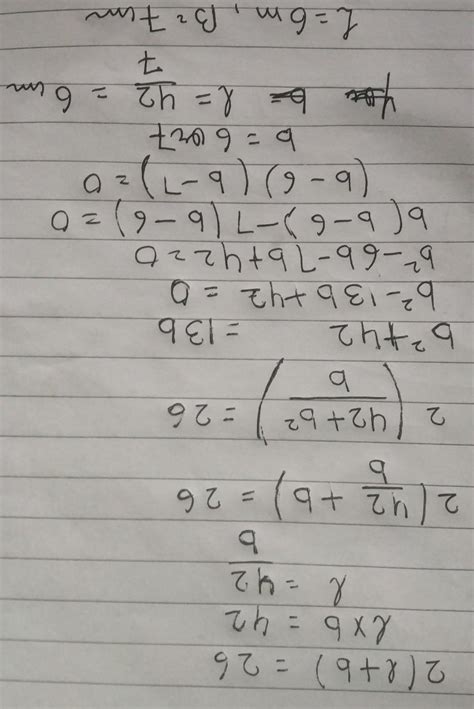 2(l+b) = 26
l×b = 42
l = 42/b
2(42/b + b) = 26
2((42+b²)/b) = 26
b²+42 = 13b
b²-13b+42 = 0
b²-6b-7b+42=0
b(b-6)-7(b-6)=0
(b-6)(b-7)=0
b = 6 or 7
l = 42/7 = 6 cm
L=6m, B=7cm